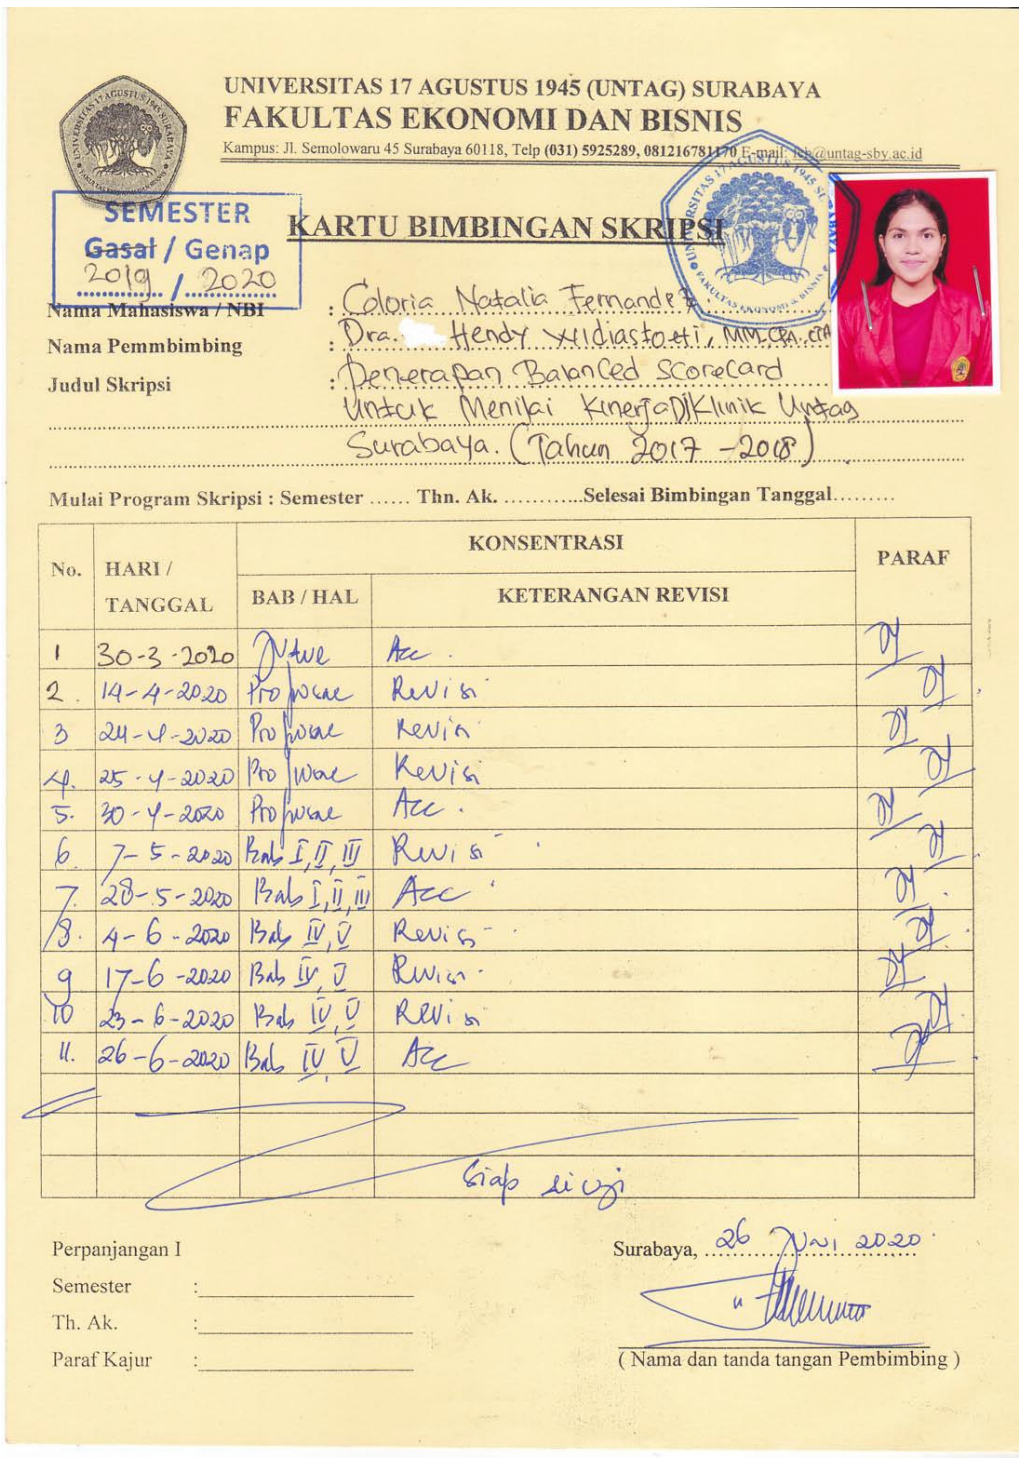 UNIVERSITAS 17 AGUSTUS 1945 (UNTAG) SURABAYA
FAKULTAS EKONOMI DAN BISNIS
Kampus: Jl. Semolowaru 45 Surabaya 60118, Telp (031) 5925289, 081216781170 E-mail: feb@untag-sby.ac.id
SEMESTER
Gasal / Genap
2019 / 2020
KARTU BIMBINGAN SKRIPSI
Nama Mahasiswa / NBI : Coloria Natalia Fernandez
Nama Pemmbimbing : Dra. Hendy Widiastoeti, MM, CPA, CTA
Judul Skripsi : Penerapan Balanced Scorecard
Untuk Menilai Kinerja Di Klinik Untag
Surabaya. (Tahun 2017 - 2018)
Mulai Program Skripsi : Semester ...... Thn. Ak. ............Selesai Bimbingan Tanggal.........
No. HARI / TANGGAL KONSENTRASI PARAF
BAB / HAL KETERANGAN REVISI
1 30-3-2020 Acc.
2. 14-4-2020 Proposal Revisi
3 24-4-2020 Proposal Revisi
4. 25-4-2020 Proposal Revisi
5. 30-4-2020 Proposal Acc.
6. 7-5-2020 Bab I, II, III Revisi
7. 28-5-2020 Bab I, II, III Acc
8. 4-6-2020 Bab IV, V Revisi
9 17-6-2020 Bab IV, V Revisi
10 23-6-2020 Bab IV, V Revisi
11. 26-6-2020 Bab IV, V Acc
Siap di uji
Perpanjangan I
Surabaya, 26 Juni 2020
Semester :
Th. Ak. :
Paraf Kajur :
( Nama dan tanda tangan Pembimbing )